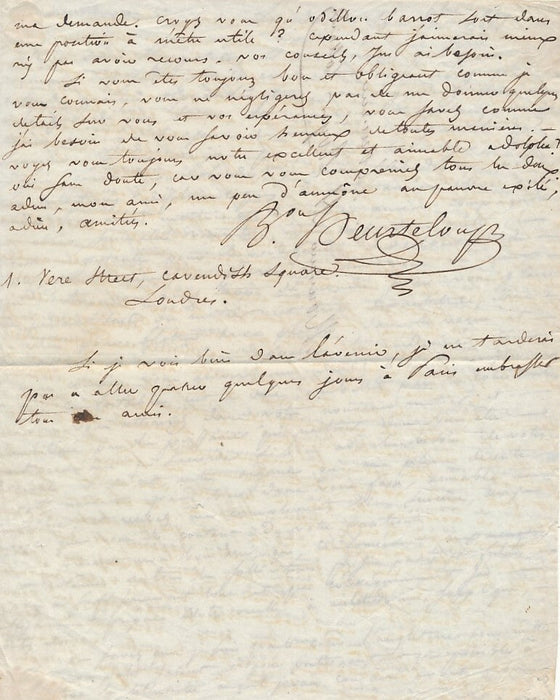 ma demande. croyez vous qu'odillon barrot soit dans
une position à m'être utile? cependant j'aimerais mieux
n'y pas avoir recours. vos conseils, j'en ai besoin.
Si vous êtes toujours bon et obligeant comme je
vous connais, vous ne négligerez pas de me donner quelques
details sur vous et vos espérances, vous savez comme
j'ai besoin de vous savoir heureux de toutes manières. —
voyez vous toujours notre excellent et aimable adolphe?
oui sans doute, car vous vous comprenez tous les deux
adieu, mon ami, un peu d'aumône au pauvre exilé,
adieu, amitiés.
B. on Heurteloup
1. Vere Street, cavendish Square.
Londres.
Si je vois bien dans l'avenir, je ne tarderai
pas a aller passer quelques jours à Paris embrasser
tous amis.